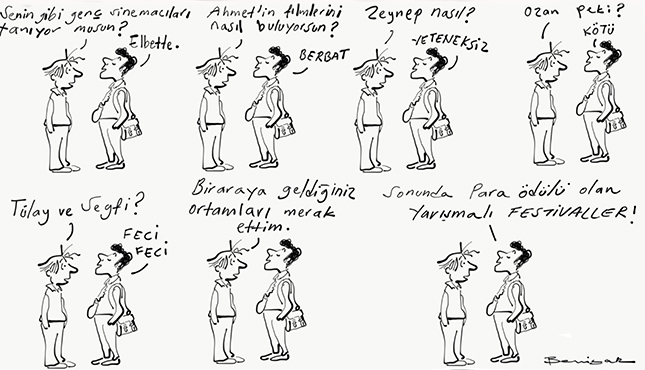 Senin gibi genç sinemacıları
tanıyor musun?
Elbette.
Ahmet'in filmlerini
nasıl buluyorsun?
BERBAT
Zeynep nasıl?
YETENEKSİZ
Ozan peki?
KÖTÜ
Tülay ve Seyfi?
FECİ
FECİ
Biraraya geldiğiniz
ortamları merak
ettim.
Sonunda Para ödülü olan
Yarışmalı FESTİVALLER!
Behiçak